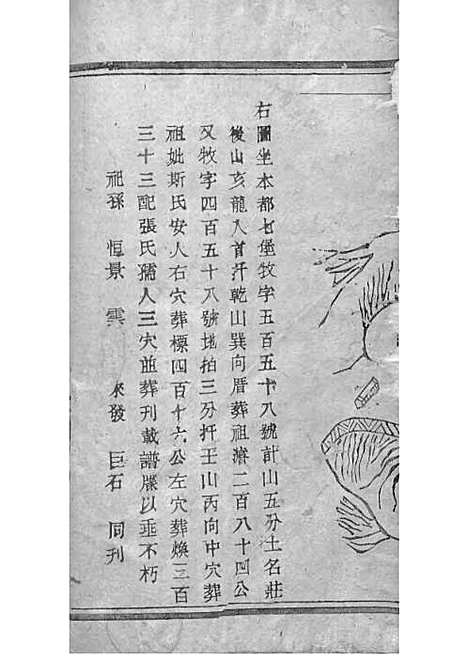 右圖坐本都七堡牧字五百五十八號計山五分土名莊
後山亥龍入首扦乾山巽向厝葬祖濟二百八十四公
又牧字四百五十八號地拍三分扦壬山丙向中穴葬
祖妣斯氏安人右穴葬標四百十六公左穴葬煥三百
三十三配張氏孺人三穴並葬刊載譜牒以垂不朽
祖孫 恒景 雲 來發 巨石 同刋